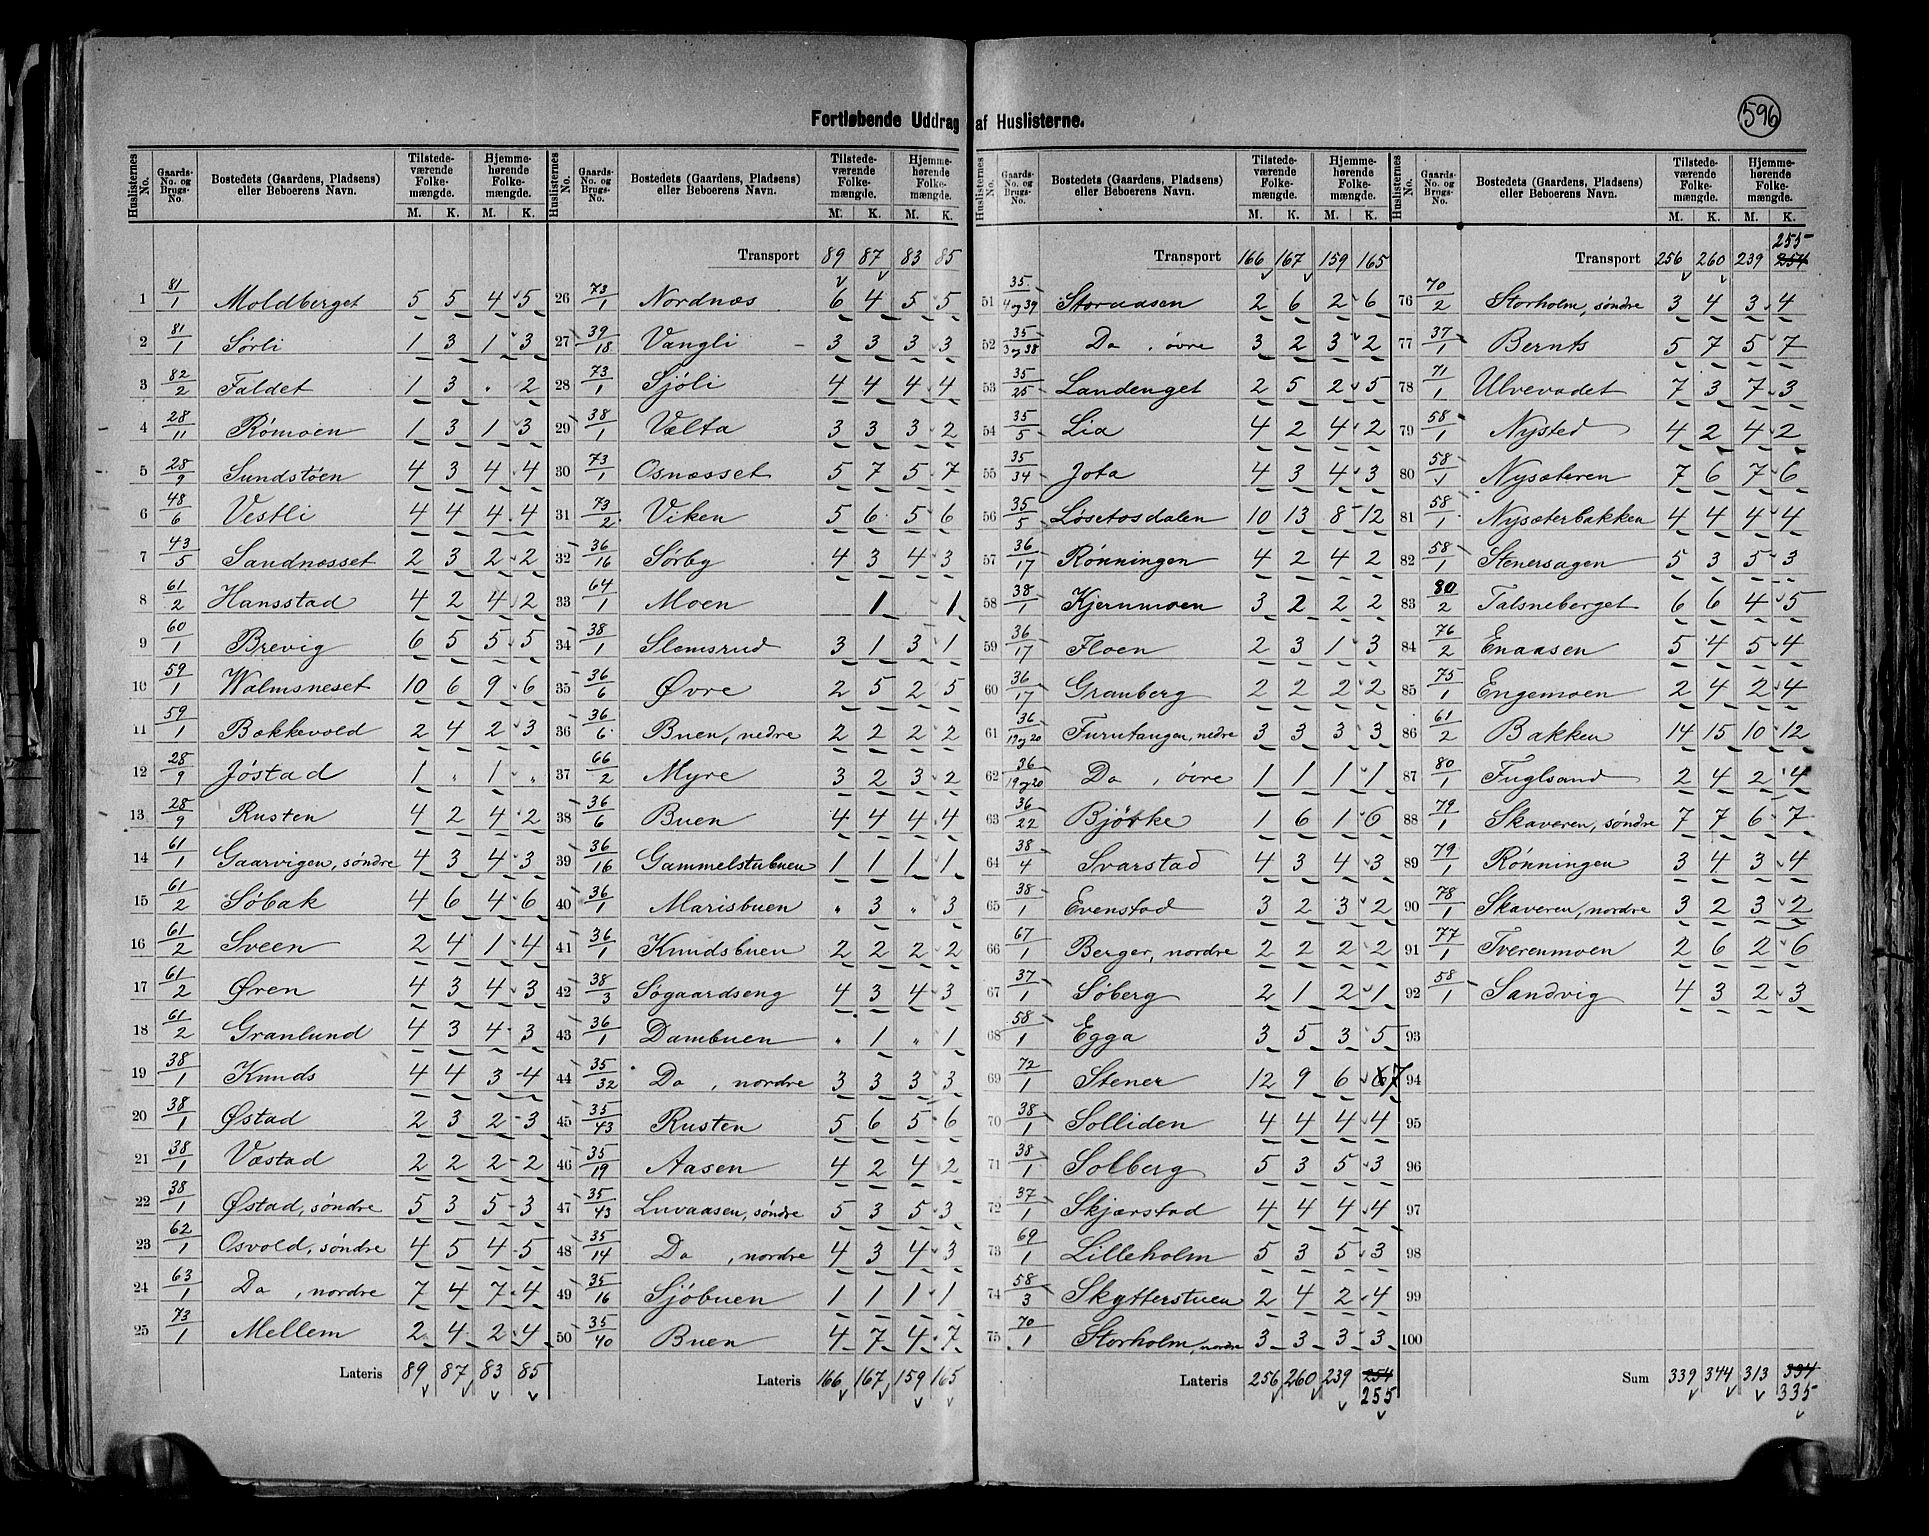 596
Fortløbende Uddrag af Huslisterne.
Huslisternes No. | Gaards-No. og Brugs-No. | Bostedets (Gaardens, Pladsens) eller Beboerens Navn. | Tilstedeværende Folkemængde. M. K. | Hjemmehørende Folkemængde. M. K.
1 81/1 Moldberget 5 5 4 5
2 81/1 Sørli 1 3 1 3
3 82/2 Faldet 1 3 " 2
4 28/11 Rømoen 1 3 1 3
5 28/9 Sundstøen 4 3 4 4
6 48/6 Vestli 4 4 4 4
7 43/5 Sandnæsset 2 3 2 2
8 61/2 Hansstad 4 2 4 2
9 60/1 Brevig 6 5 5 5
10 59/1 Walmsneset 10 6 9 6
11 59/1 Bakkevold 2 4 2 3
12 28/9 Jøstad 1 " 1 "
13 28/9 Rusten 4 2 4 2
14 61/1 Gaarvigen, søndre 4 3 4 3
15 61/2 Søbak 4 6 4 6
16 61/2 Sveen 2 4 1 4
17 61/2 Øren 4 3 4 3
18 61/2 Granlund 4 3 4 3
19 38/1 Knuds 4 4 3 4
20 38/1 Østad 2 3 2 3
21 38/1 Væstad 2 2 2 2
22 38/1 Østad, søndre 5 3 5 3
23 62/1 Osvold, søndre 4 5 4 5
24 63/1 Do , nordre 7 4 7 4
25 73/1 Mellem 2 4 2 4
Lateris 89 87 83 85
Huslisternes No. | Gaards-No. og Brugs-No. | Bostedets (Gaardens, Pladsens) eller Beboerens Navn. | Tilstedeværende Folkemængde. M. K. | Hjemmehørende Folkemængde. M. K.
Transport 89 87 83 85
26 73/1 Nordnæs 6 4 5 5
27 39/18 Vangli 3 3 3 3
28 73/1 Sjøli 4 4 4 4
29 38/1 Vælta 3 3 3 2
30 73/1 Osnæsset 5 7 5 7
31 73/2 Viken 5 6 5 6
32 36/16 Sørby 4 3 4 3
33 64/1 Moen 1 1
34 38/1 Slemsrud 3 1 3 1
35 36/6 Øvre 2 5 2 5
36 36/6 Buen, nedre 2 2 2 2
37 66/2 Myre 3 2 3 2
38 36/6 Buen 4 4 4 4
39 36/16 Gammelstubuen 1 1 1 1
40 36/1 Marisbuen " 3 " 3
41 36/1 Knudsbuen 2 2 2 2
42 38/3 Søgaardseng 4 3 4 3
43 36/1 Dambuen " 1 " 1
44 35/32 Do , nordre 3 3 3 3
45 35/43 Rusten 5 6 5 6
46 35/19 Aasen 4 2 4 2
47 35/43 Luvaasen, søndre 5 3 5 3
48 35/14 Do , nordre 4 3 4 3
49 35/16 Sjøbuen 1 1 1 1
50 35/40 Buen 4 7 4 7
Lateris 166 167 159 165
Huslisternes No. | Gaards-No. og Brugs-No. | Bostedets (Gaardens, Pladsens) eller Beboerens Navn. | Tilstedeværende Folkemængde. M. K. | Hjemmehørende Folkemængde. M. K.
Transport 166 167 159 165
51 35/4 og 39 Storaasen 2 6 2 6
52 35/3 og 38 Do , øvre 3 2 3 2
53 35/25 Landenget 2 5 2 5
54 35/5 Lia 4 2 4 2
55 35/34 Jota 4 3 4 3
56 35/5 Løsetosdalen 10 13 8 12
57 36/17 Rønningen 4 2 4 2
58 38/1 Kjernmoen 3 2 2 2
59 36/17 Floen 2 3 1 3
60 36/17 Granberg 2 2 2 2
61 36/19 og 20 Furutangen, nedre 3 3 3 3
62 36/19 og 20 Do , øvre 1 1 1 1
63 36/22 Bjørke 1 6 1 6
64 38/4 Svarstad 4 3 4 3
65 38/1 Evenstad 3 2 3 2
66 67/1 Berger, nordre 2 2 2 2
67 37/1 Søberg 2 1 2 1
68 58/1 Egga 3 5 3 5
69 72/1 Stener 12 9 6 6 7
70 38/1 Solliden 4 4 4 4
71 38/1 Solberg 5 3 5 3
72 37/1 Skjærstad 4 4 4 4
73 69/1 Lilleholm 5 3 5 3
74 58/3 Skytterstuen 2 4 2 4
75 70/1 Storholm, nordre 3 3 3 3
Lateris 256 260 239 254
255
Huslisternes No. | Gaards-No. og Brugs-No. | Bostedets (Gaardens, Pladsens) eller Beboerens Navn. | Tilstedeværende Folkemængde. M. K. | Hjemmehørende Folkemængde. M. K.
255
Transport 256 260 239 254
76 70/2 Storholm, søndre 3 4 3 4
77 37/1 Bernts 5 7 5 7
78 71/1 Ulvevadet 7 3 7 3
79 58/1 Nysted 4 2 4 2
80 58/1 Nysæteren 7 6 7 6
81 58/1 Nysæterbakken 4 4 4 4
82 58/1 Stenersagen 5 3 5 3
83 80/2 Talsneberget 6 6 4 5
84 76/2 Enaasen 5 4 5 4
85 75/1 Engemoen 2 4 2 4
86 61/2 Bakken 14 15 10 12
87 80/1 Fuglsand 2 4 2 4
88 79/1 Skaveren, søndre 7 7 6 7
89 79/1 Rønningen 3 4 3 4
90 78/1 Skaveren, nordre 3 2 3 2
91 77/1 Tverenmoen 2 6 2 6
92 58/1 Sandvig 4 3 2 3
93
94
95
96
97
98
99
100
Sum 339 344 313 334
335